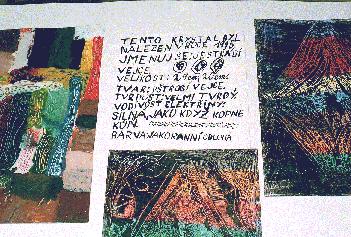 TENTO KRYSTAL BYL
NALEZEN V ROCE 1995
JMENUJE SE JESTŘÁBÍ
VEJCE.
VELIKOST:
TVAR: JESTŘÁBÍ VEJCE.
TVRDOST: VELMI TVRDÝ
VODIVOST ELEKTŘINY:
SILNÁ, JAKO KDYŽ KOPNE
KŮŇ.
BARVA: JAKO RANNÍ OBLOHA